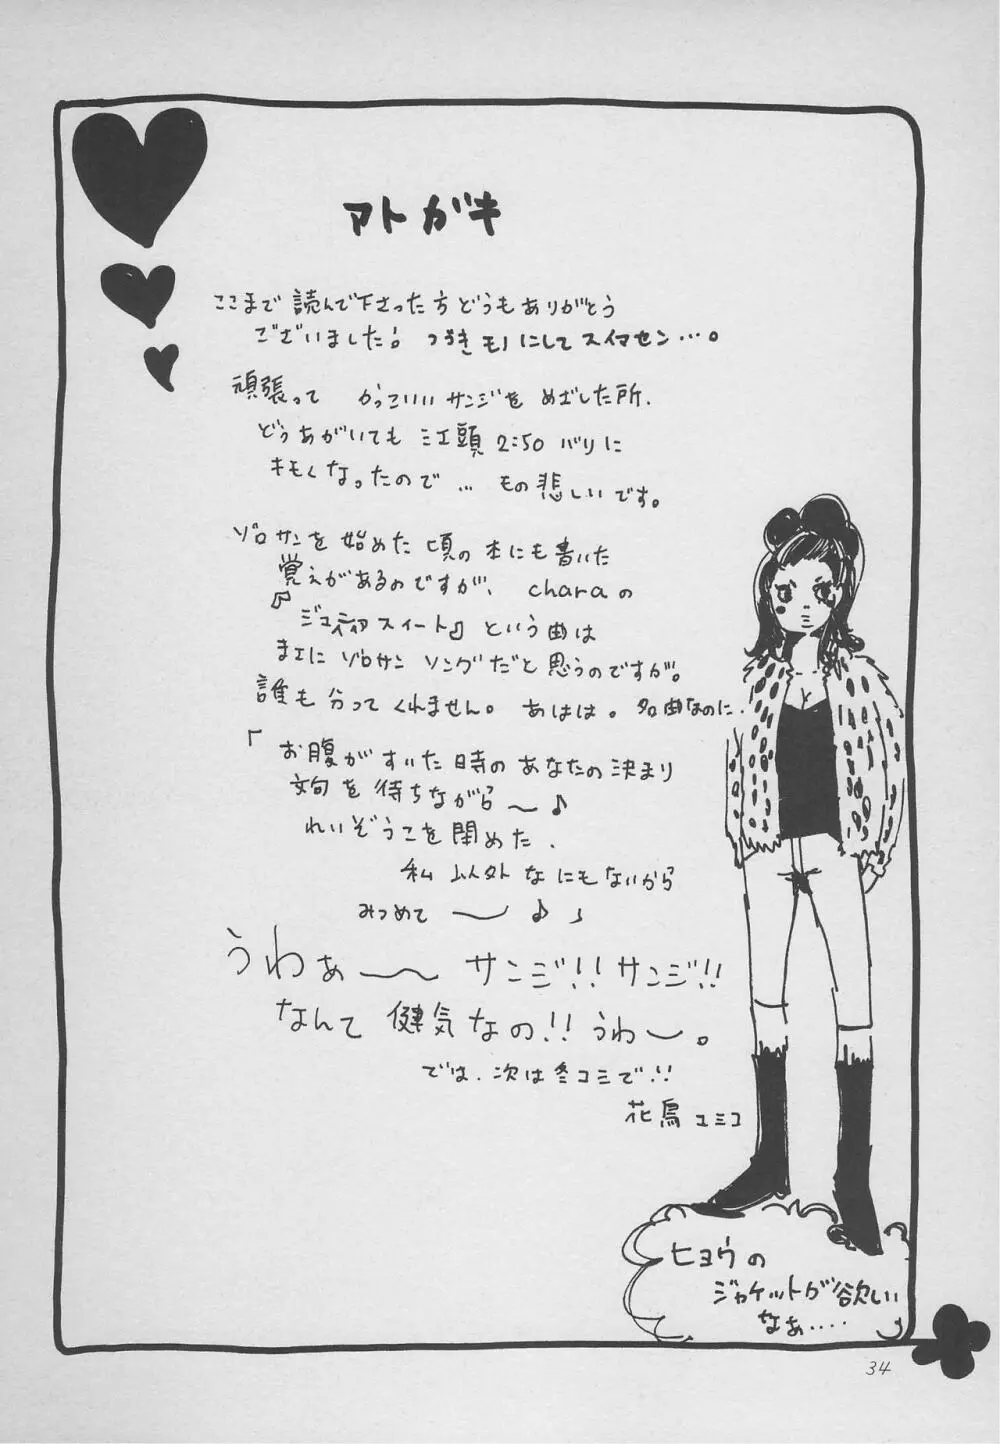 アトガキ
ここまで読んで下さった方どうもありがとう
ございました! つづきモノにしてスイマセン…。
頑張って かっこいいサンジを めざした所、
どうあがいても 江頭2:50バリに
キモくなったので… もの悲しいです。
ゾロサンを始めた頃の本にも書いた
覚えがあるのですが、charaの
『ジュディアスィート』という曲は
まさに ゾロサン ソングだと思うのですが。
誰も分ってくれません。あはは。名曲なのに.
「お腹がすいた時のあなたの決まり
文句を待ちながら〜♪
れいぞうこを閉めた.
私以外なにもないから
みつめて 〜♪」
うわぁ〜 サンジ!!サンジ!!
なんて健気なの!! うわ〜。
では、次は冬コミで!!
花鳥ユミコ
ヒョウの
ジャケットが欲しい
なぁ‥‥
34